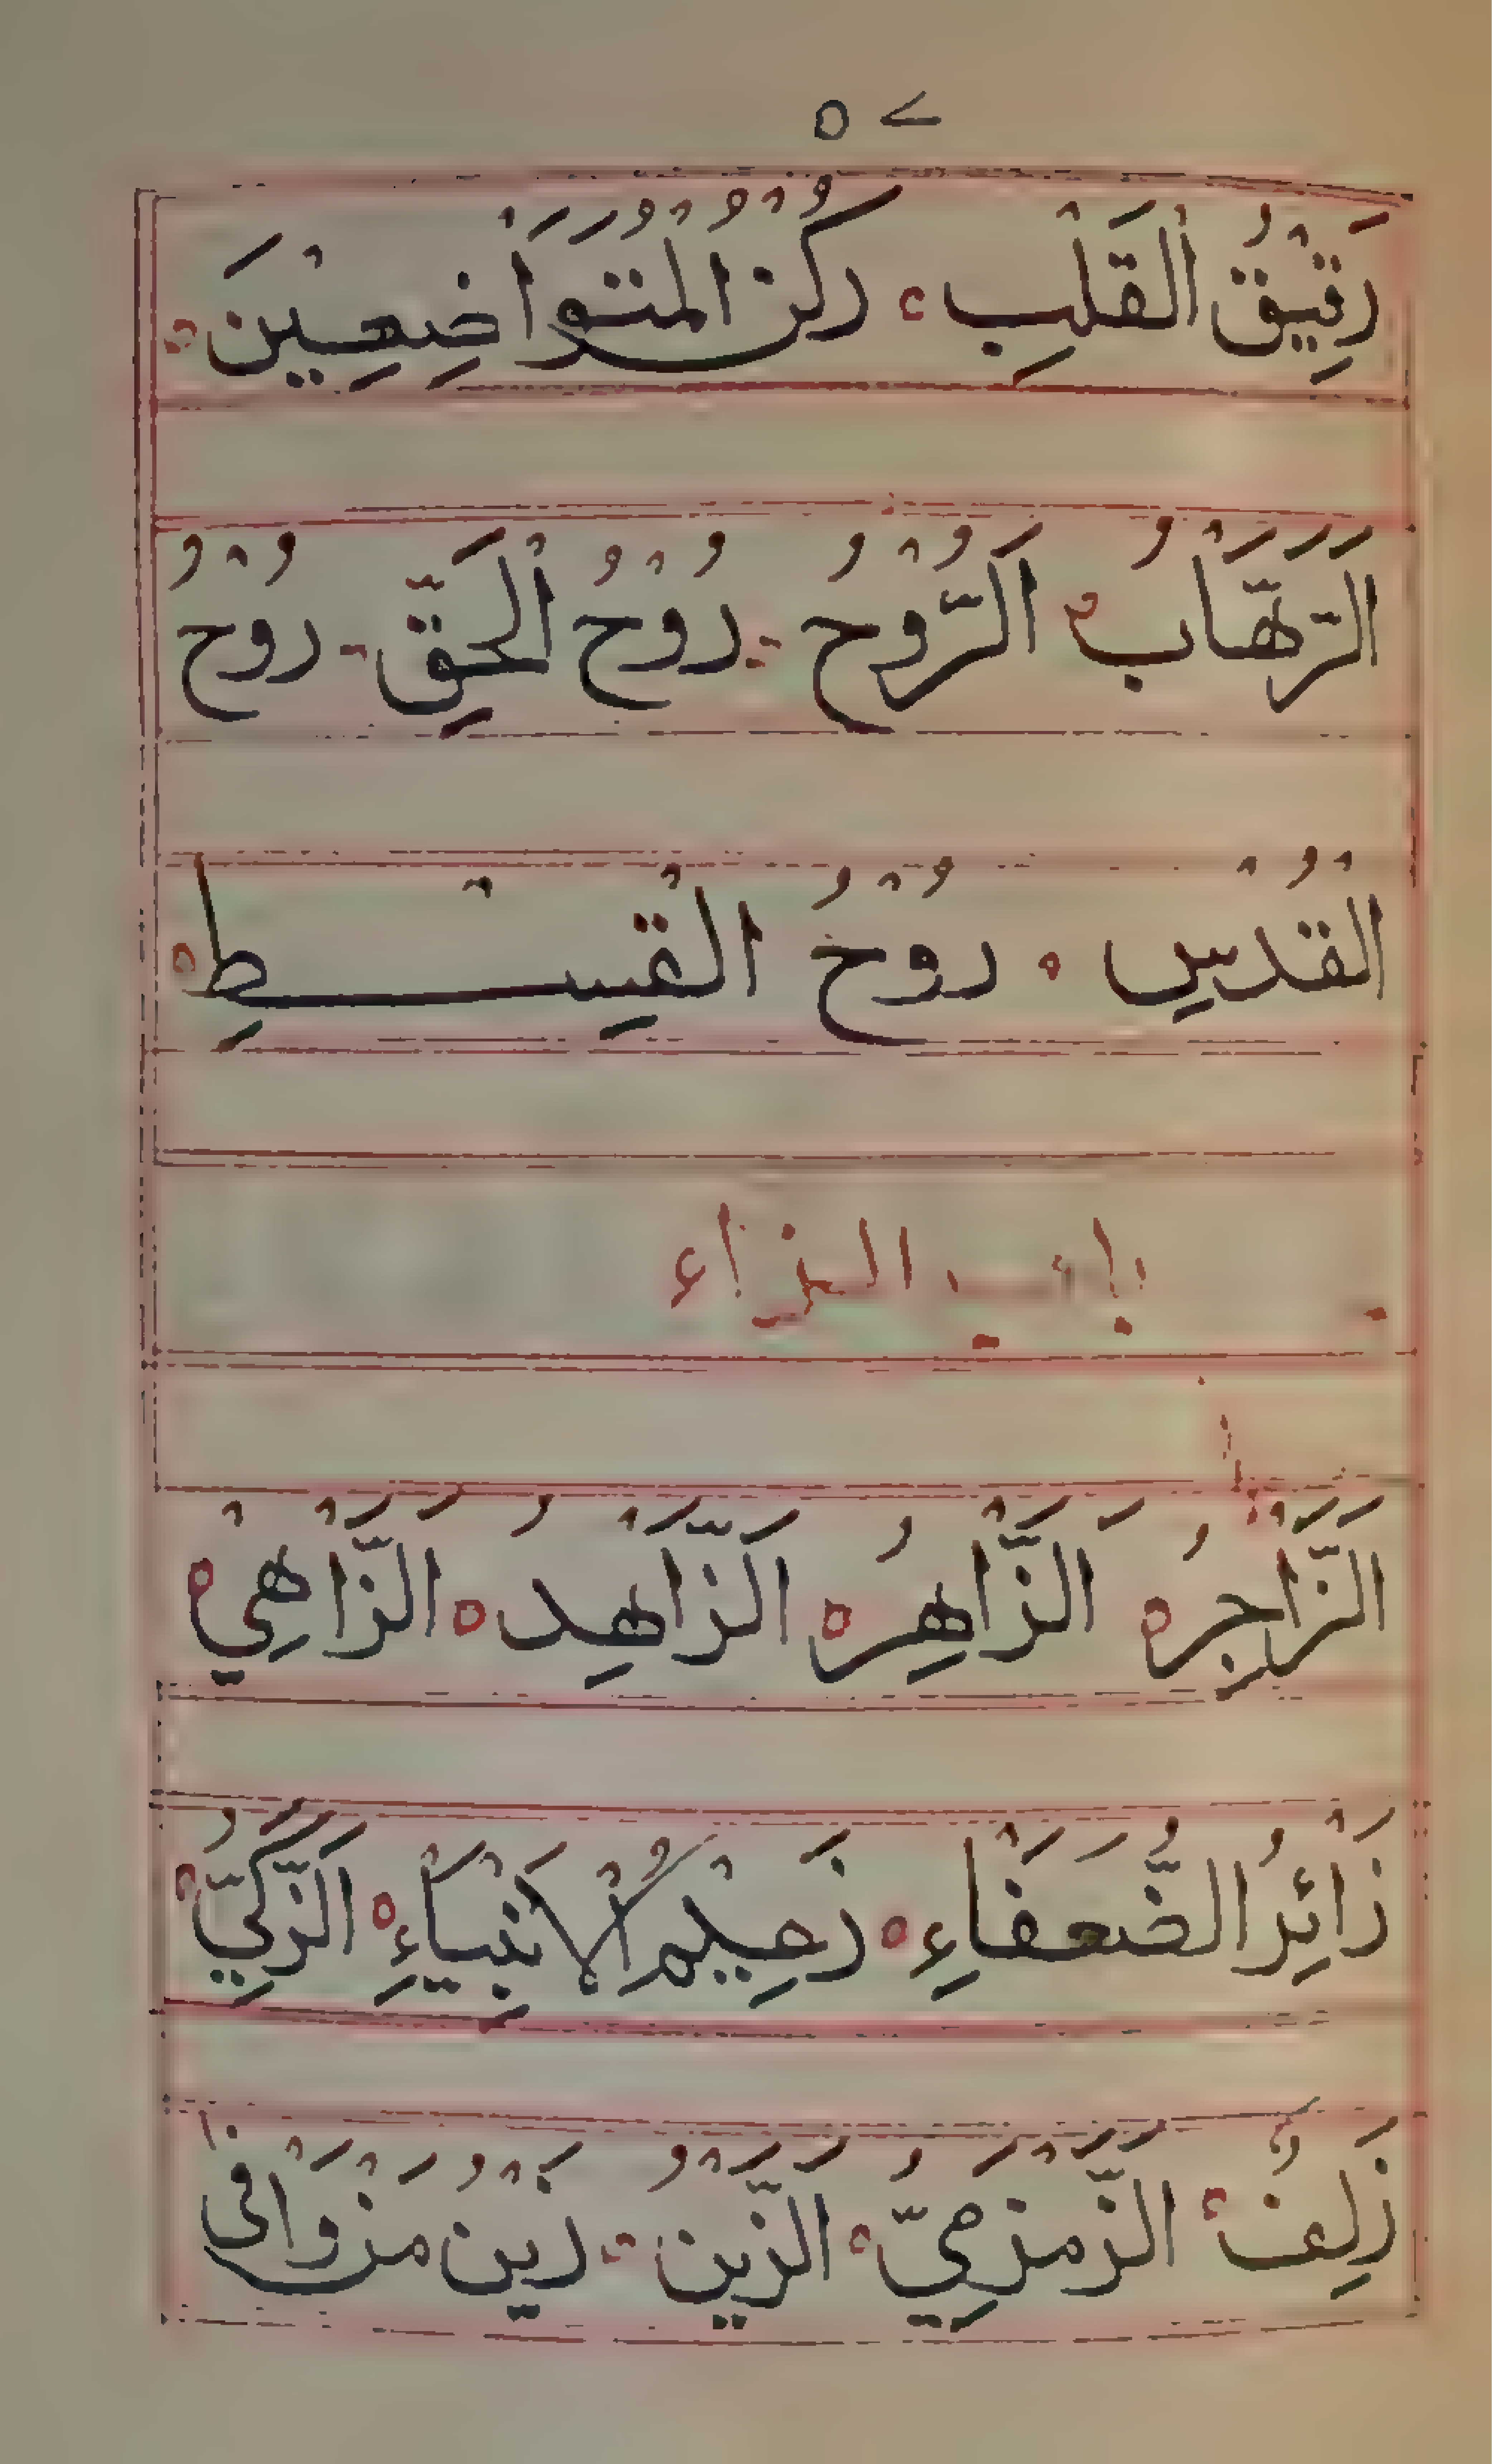 ٥٧
رَقِيْقُ الْقَلْبِ ۰ رُكْنُ الْمُتَوَاضِعِيْنَ ۰
اَلرَّهَّابُ ۰ اَلرُّوْحُ ۰ رُوْحُ الْحَقِّ ۰ رُوْحُ
الْقُدْسِ ۰ رُوْحُ الْقِسْطِ ۰
باب الزاء
اَلزَّاجِرُ ۰ اَلزَّاهِرُ ۰ اَلزَّاهِدُ ۰ اَلزَّاهِيْ ۰
زَائِرُ الضُّعَفَاءِ ۰ زَعِيْمُ الْاَنْبِيَاءِ ۰ اَلزَّكِيُّ ۰
زَلِفٌ ۰ اَلزَّمْزَمِيُّ ۰ اَلزَّيْنُ ۰ زَيْنُ مَنْ وَافَى